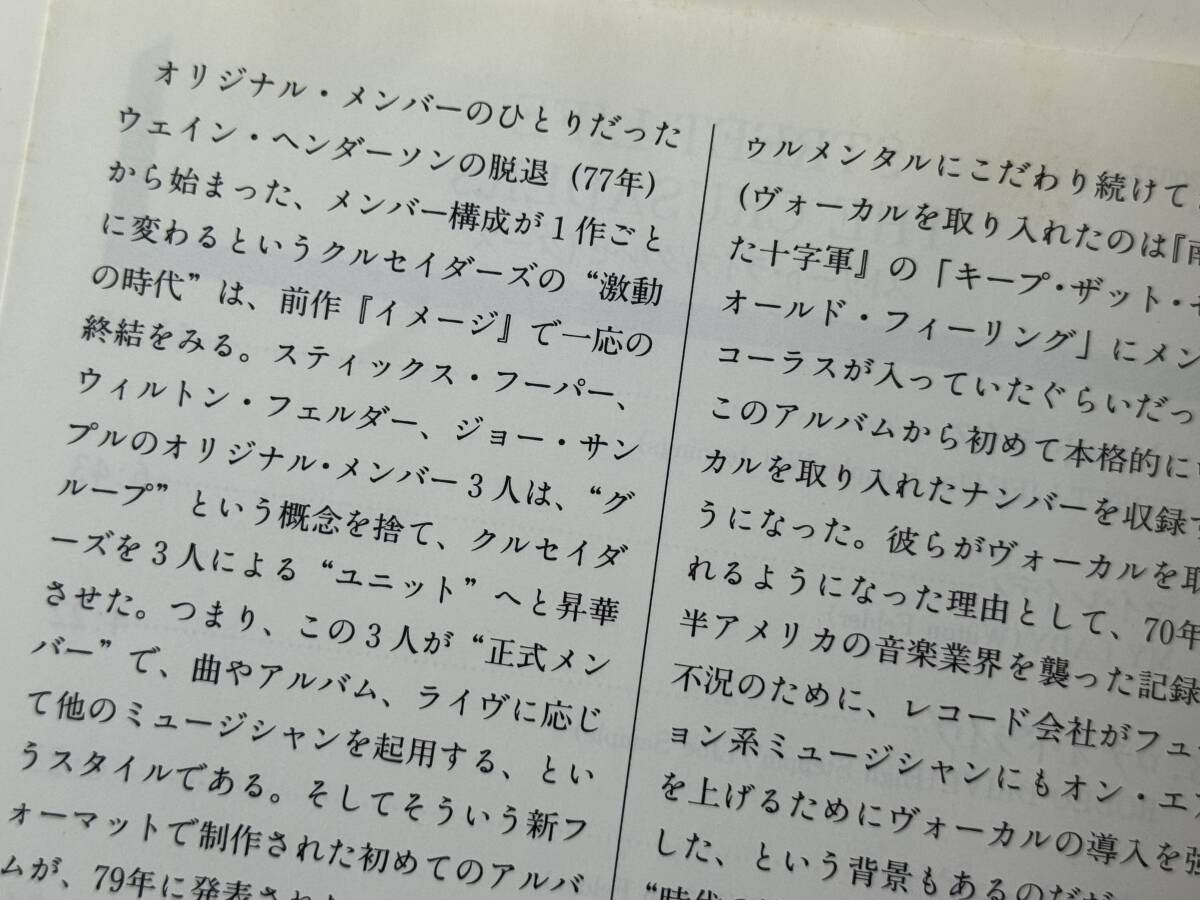 オリジナル・メンバーのひとりだった
ウェイン・ヘンダーソンの脱退（77年）
から始まった、メンバー構成が1作ごと
に変わるというクルセイダーズの“激動
の時代”は、前作『イメージ』で一応の
終結をみる。スティックス・フーパー、
ウィルトン・フェルダー、ジョー・サン
プルのオリジナル・メンバー3人は、“グ
ループ”という概念を捨て、クルセイダ
ーズを3人による“ユニット”へと昇華
させた。つまり、この3人が“正式メン
バー”で、曲やアルバム、ライヴに応じ
て他のミュージシャンを起用する、とい
うスタイルである。そしてそういう新フ
ォーマットで制作された初めてのアルバ
ムが、79年に発表された
ゥルメンタルにこだわり続けて
（ヴォーカルを取り入れたのは『南
た十字軍』の「キープ・ザット・
オールド・フィーリング」にメン
コーラスが入っていたぐらいだっ
このアルバムから初めて本格的に
カルを取り入れたナンバーを収録
うになった。彼らがヴォーカルを取
れるようになった理由として、70年
半アメリカの音楽業界を襲った記録
不況のために、レコード会社がフュ
ョン系ミュージシャンにもオン・エ
を上げるためにヴォーカルの導入を強
した、という背景もあるのだが
“時代